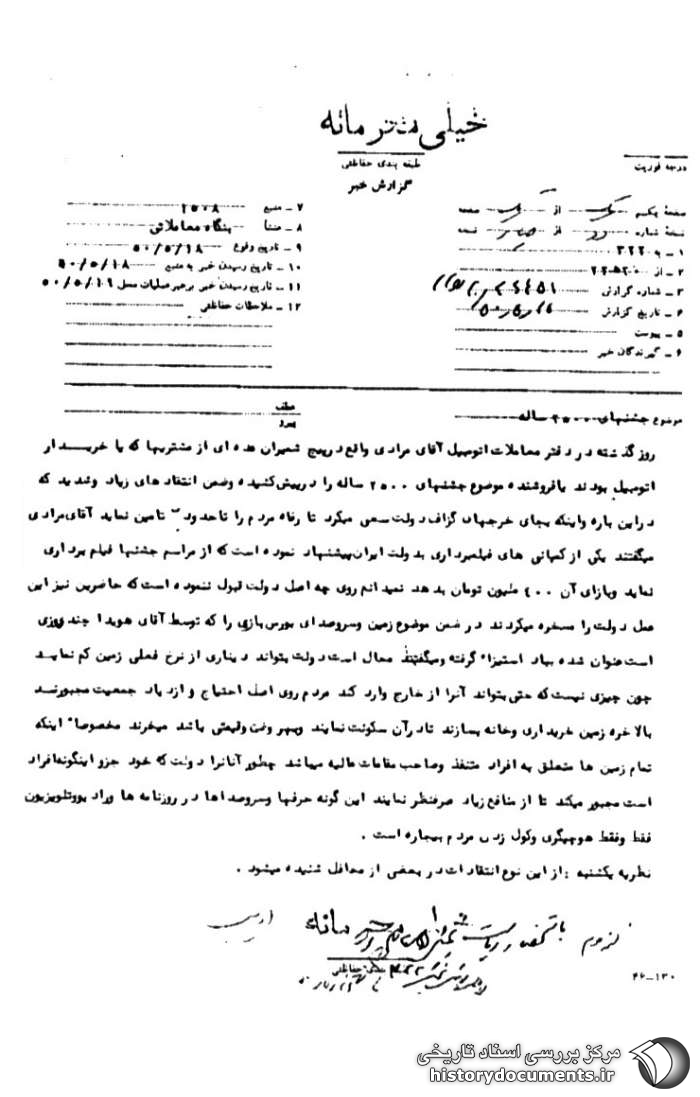 خیلی محرمانه
طبقه بندی حفاظتی
گزارش خبر
درجه فوریت
صفحهٔ یکم از صفحه
نسخهٔ شماره از نسخه
۱ ـ به ۳۲۲
۲ ـ از
۳ ـ شماره گزارش
۴ ـ تاریخ گزارش
۵ ـ پیوست
۶ ـ گیرندگان خبر
۷ ـ منبع ۲۵۰۸
۸ ـ منشأ بنگاه معاملاتی
۹ ـ تاریخ وقوع ۵۰/۵/۱۸
۱۰ ـ تاریخ رسیدن خبر به منبع ۵۰/۵/۱۸
۱۱ ـ تاریخ رسیدن خبر برهبر عملیات محل ۵۰/۵/۱۹
۱۲ ـ ملاحظات حفاظتی
موضوع جشنهای ۲۵۰۰ ساله
عطف
پیرو
روز گذشته در دفتر معاملات اتومبیل آقای مرادی واقع در پیچ شمیران عده ای از مشتریها که یا خریدار
اتومبیل بودند یا فروشنده موضوع جشنهای ۲۵۰۰ ساله را در پیش کشیده و ضمن انتقادهای زیاد و شدید که
در این باره و اینکه بجای خرجهای گزاف دولت سعی میکرد تا رفاه مردم را تا حدودی تامین نماید آقای مرادی
میگفتند یکی از کمپانی های فیلمبرداری بدولت ایران پیشنهاد نموده است که از مراسم جشنها فیلم برداری
نماید وبازای آن ۴۰۰ ملیون تومان بدهد نمیدانم روی چه اصل دولت قبول ننموده است که حاضرین نیز این
عمل دولت را مسخره میکردند در ضمن موضوع زمین وسروصدای بورس بازی را که توسط آقای هویدا چند روزی
است عنوان شده بباد استیزاء گرفته ومیگفتند محال است دولت بتواند دیناری از نرخ فعلی زمین کم نماید
چون چیزی نیست که حتی بتواند آنرا از خارج وارد کند مردم روی اصل احتیاج و ازدیاد جمعیت مجبورند
بالاخره زمین خریداری وخانه بسازند تا در آن سکونت نمایند وبهر وضع وقیمتی باشد میخرند مخصوصاً اینکه
تمام زمین ها متعلق به افراد متنفذ وصاحب مقامات عالیه میباشد چطور آنانرا دولت که خود جزو اینگونه افراد
است مجبور میکند تا از منافع زیاد صرفنظر نمایند این گونه حرفها وسروصداها در روزنامه ها ورادیو وتلویزیون
فقط وفقط هوچیگری وگول زدن مردم بیچاره است .
نظریه یکشنبه : از این نوع انتقادات در بعضی از محافل شنیده میشود .
محرمانه
طبقه بندی حفاظتی
۴۶ـ۱۳۰
مرکز بررسی اسناد تاریخی
historydocuments.ir